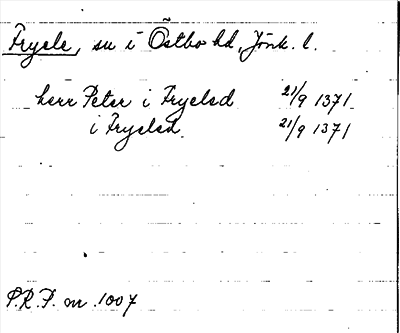 Fryele, sn i Östbo hd, Jönk. l.
herr Peter i Fryelsd 21/9 1371
i Fryelsd 21/9 1371
P.R.P. nr 1007